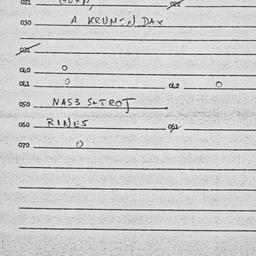 021 022
030 A KRUMIN DAX
031
040 0
041 0 042 0
050 NAS3 S+TROT
060 RINES 061
070 0